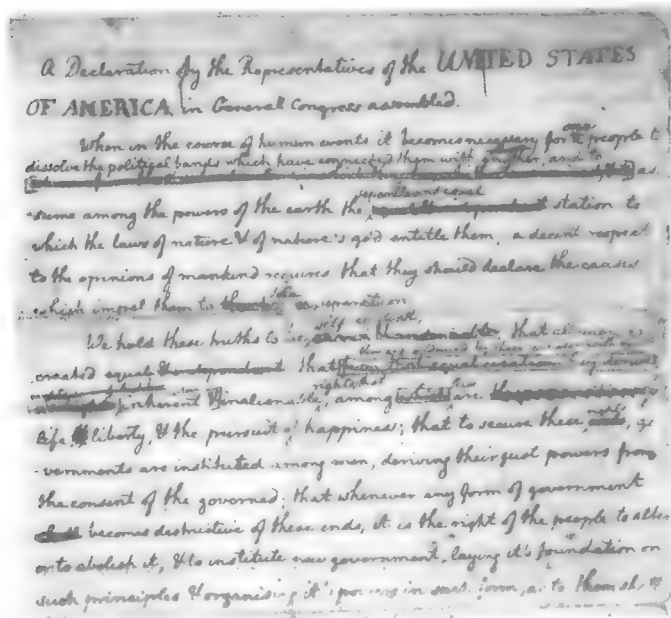 A Declaration by the Representatives of the UNITED STATES
OF AMERICA, in General Congress assembled.
When in the course of human events it becomes necessary for one people to
dissolve the political bands which have connected them with another, and to
as
-sume among the powers of the earth the separate and equal station to
which the laws of nature & of nature's god entitle them, a decent respect
to the opinions of mankind requires that they should declare the causes
which impel them to the separation.
We hold these truths to be self evident, that all men are
created equal that
inherent & inalienable, among are
life, liberty, & the pursuit of happiness; that to secure these rights, go
-vernments are instituted among men, deriving their just powers from
the consent of the governed; that whenever any form of government
becomes destructive of these ends, it is the right of the people to alter
or to abolish it, & to institute new government, laying it's foundation on
such principles & organising it's powers in such form, as to them